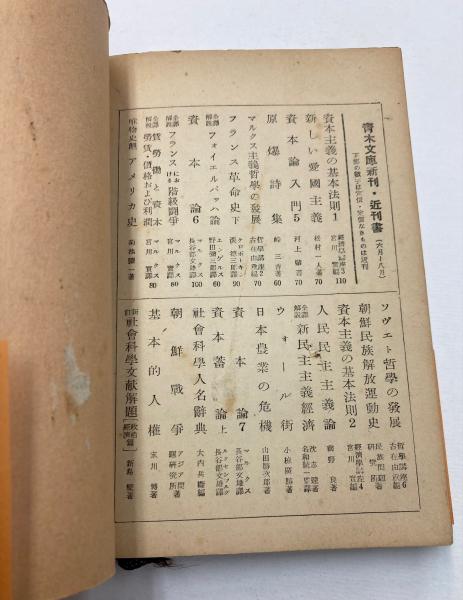 青木文庫新刊・近刊書（六月―八月）
下部の數字は定價・定價なきものは近刊
資本主義の基本法則 1 經濟學講座3 宮川 實編 110
新しい愛國主義 松村一人著 70
資本論入門 5 河上 肇著 70
原爆詩集 峠 三吉著 60
マルクス主義哲學の發展 哲學講座2 古在由重編 70
フランス革命史 下 クロポートキン 淡 徳三郎譯 90
全譯解説 フォイエルバッハ論 エンゲルス 60
資本論 6 マルクス 長谷部文雄譯 100
全譯解説 フランスにおける階級闘爭 マルクス 宮川 實譯 80
全譯解説 賃勞働と資本 勞賃・價格および利潤 マルクス 宮川 實譯 80
唯物史觀 アメリカ史 菊池謙一著
ソヴェト哲學の發展 哲學講座6 古在由重編
朝鮮民族解放運動史 民族問題研究所著
資本主義の基本法則 2 經濟學講座4 宮川 實編
人民民主主義論 鹿野 良著
全譯解説 新民主主義經濟 沈 志遠著
ウォール街 小椋廣勝著
日本農業の危機 山田勝次郎著
資本論 7 マルクス 長谷部文雄譯
資本蓄積論 上 ルクセンブルグ 長谷部文雄譯
社會科學人名辭典 大内兵衞編
朝鮮戰爭 アジア問題研究所著
基本的人權 末川 博著
社會科學文獻解題［政治經濟篇］ 新島 繁著